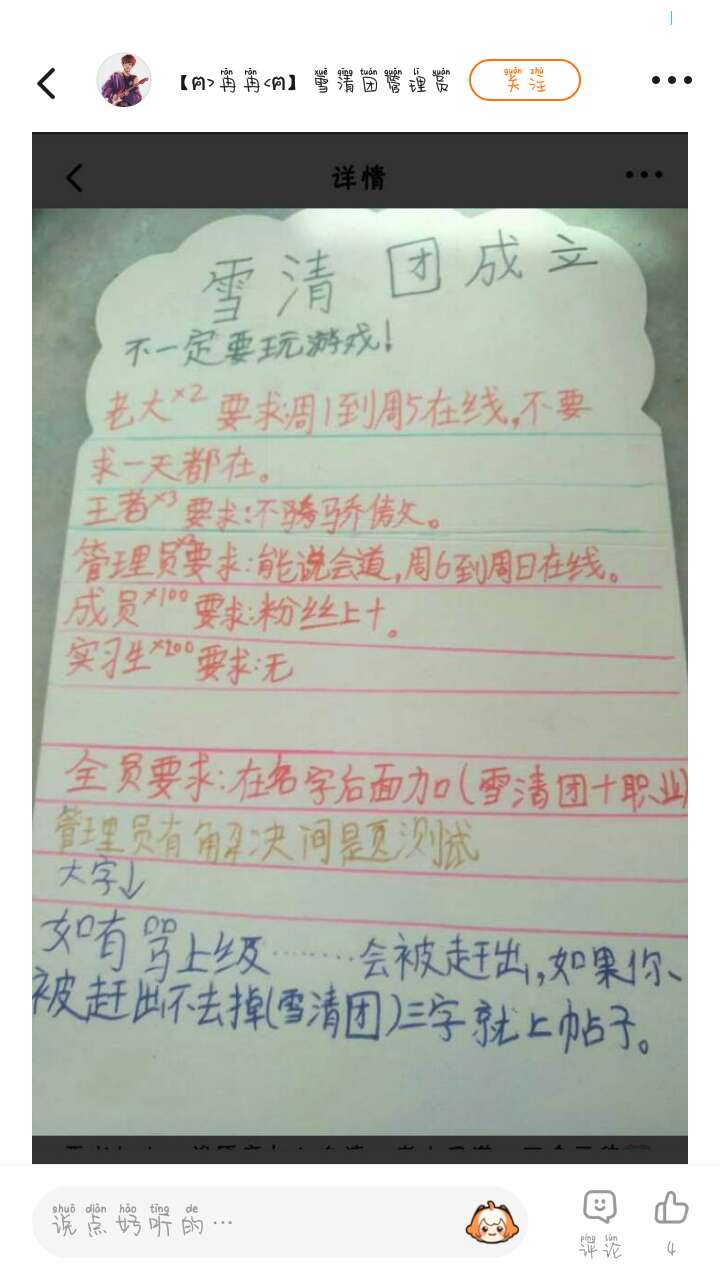 【ฅ>冉冉<ฅ】雪清团管理员
关注
详情
雪清团成立
不一定要玩游戏！
老大×2 要求:周1到周5在线,不要
求一天都在。
王者×3 要求:不骄骄傲。
管理员要求:能说会道,周6到周日在线。
成员×100 要求:粉丝上十。
实习生×200 要求:无
全员要求:在名字后面加(雪清团+职业)
管理员有解决问题测试
大字↓
如有骂上级………会被赶出,如果你、
被赶出不去掉(雪清团)三字就上帖子。
说点好听的…
评论
4